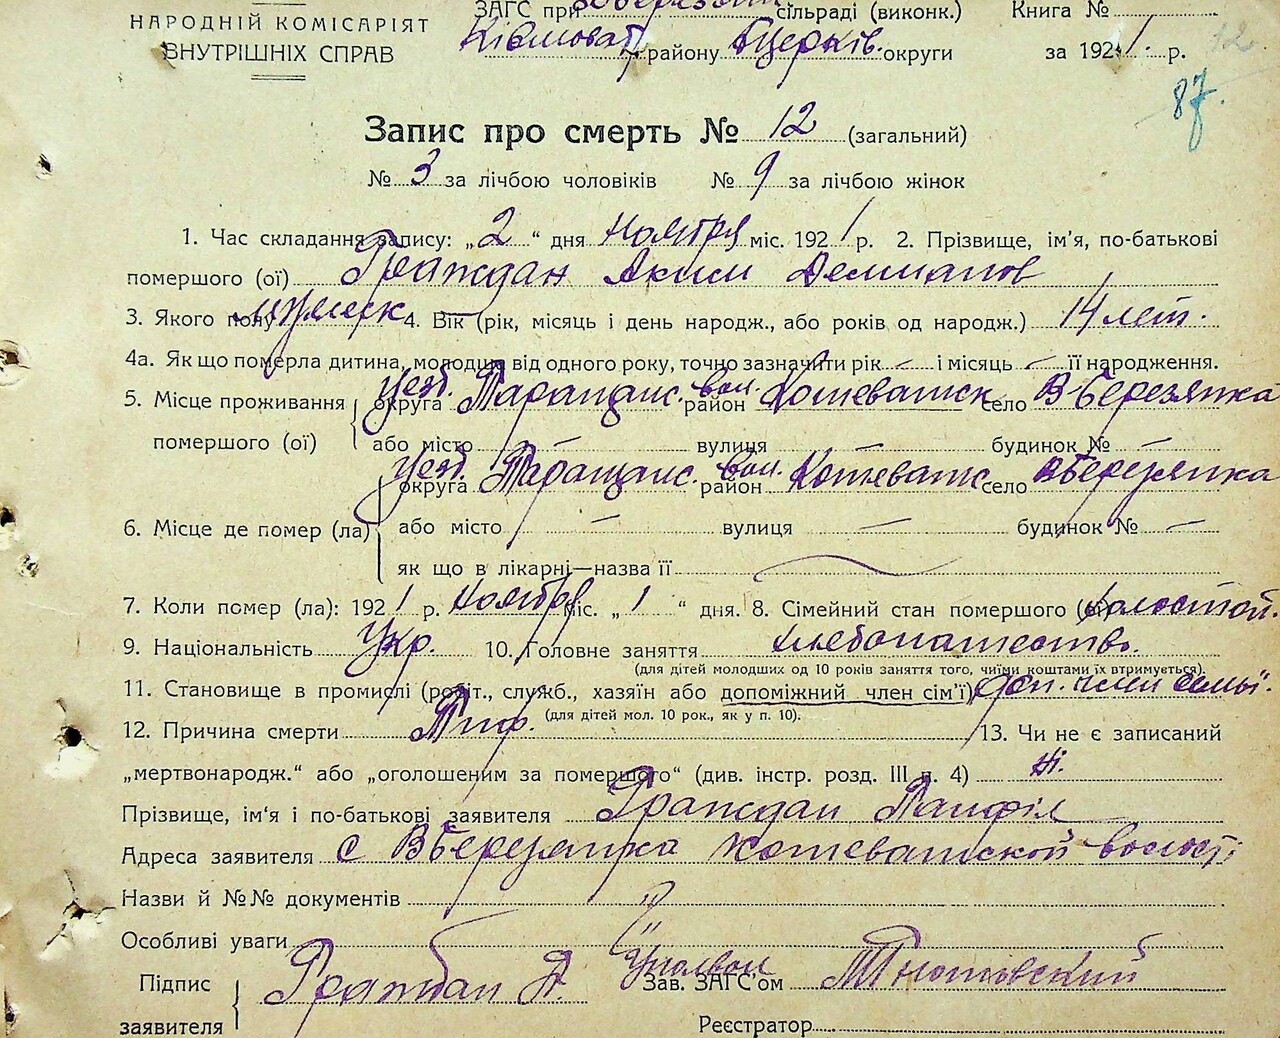 НАРОДНІЙ КОМІСАРІЯТ
ВНУТРІШНІХ СПРАВ
ЗАГС при сільраді (виконк.)
району округи
Книга №
за 1921 р.
12
87.
Запис про смерть № 12 (загальний)
№ 3 за лічбою чоловіків № 9 за лічбою жінок
1. Час складання запису: „2“ дня Ноября міс. 1921 р. 2. Прізвище, ім'я, по-батькові
помершого (ої) Граждан Аким Демианов
3. Якого полу мужеск 4. Вік (рік, місяць і день народж., або років од народж.) 14 лет.
4а. Як що померла дитина, молодша від одного року, точно зазначити рік — і місяць — її народження.
5. Місце проживання помершого (ої) округа уезд. Таращанс. район вол. Кошеватск село Вберезянка
або місто — вулиця — будинок № —
6. Місце де помер (ла) округа уезд. Таращанс. район вол. Кошеватс село Вберезянка
або місто — вулиця — будинок № —
як що в лікарні—назва її
7. Коли помер (ла): 1921 р. Ноября міс. „1“ дня. 8. Сімейний стан помершого (ої) холостой.
9. Національність Укр. 10. Головне заняття хлебопашество.
(для дітей молодших од 10 років заняття того, чиїми коштами їх втримується).
11. Становище в промислі (робіт., служб., хазяїн або допоміжний член сім'ї) доп. член семьи.
(для дітей мол. 10 рок., як у п. 10).
12. Причина смерти Тиф. 13. Чи не є записаний
„мертвонародж.“ або „оголошеним за помершого“ (див. інстр. розд. III п. 4) Ні.
Прізвище, ім'я і по-батькові заявителя Граждан Панфіл
Адреса заявителя с Вберезянка Кошеватской волости
Назви й №№ документів
Особливі уваги
Підпис заявителя Граждан П. Зав. ЗАГС'ом
Реєстратор